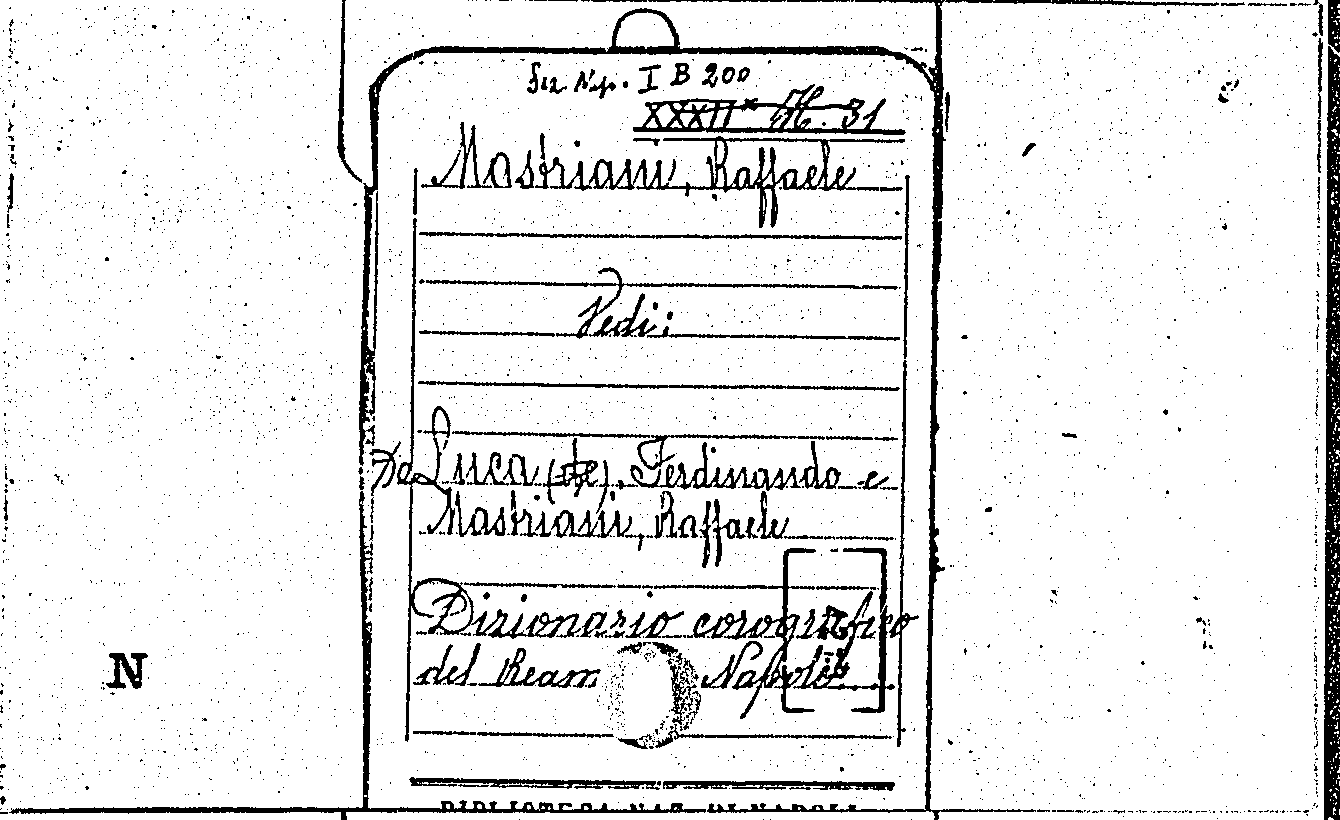 Sez. Nap. I B 200
XXXII* H. 31
Mastriani, Raffaele
Vedi:
De Luca (de). Ferdinando e
Mastriani, Raffaele
Dizionario corografico
del Ream Napoli
N
BIBLIOTECA NAZ. DI NAPOLI